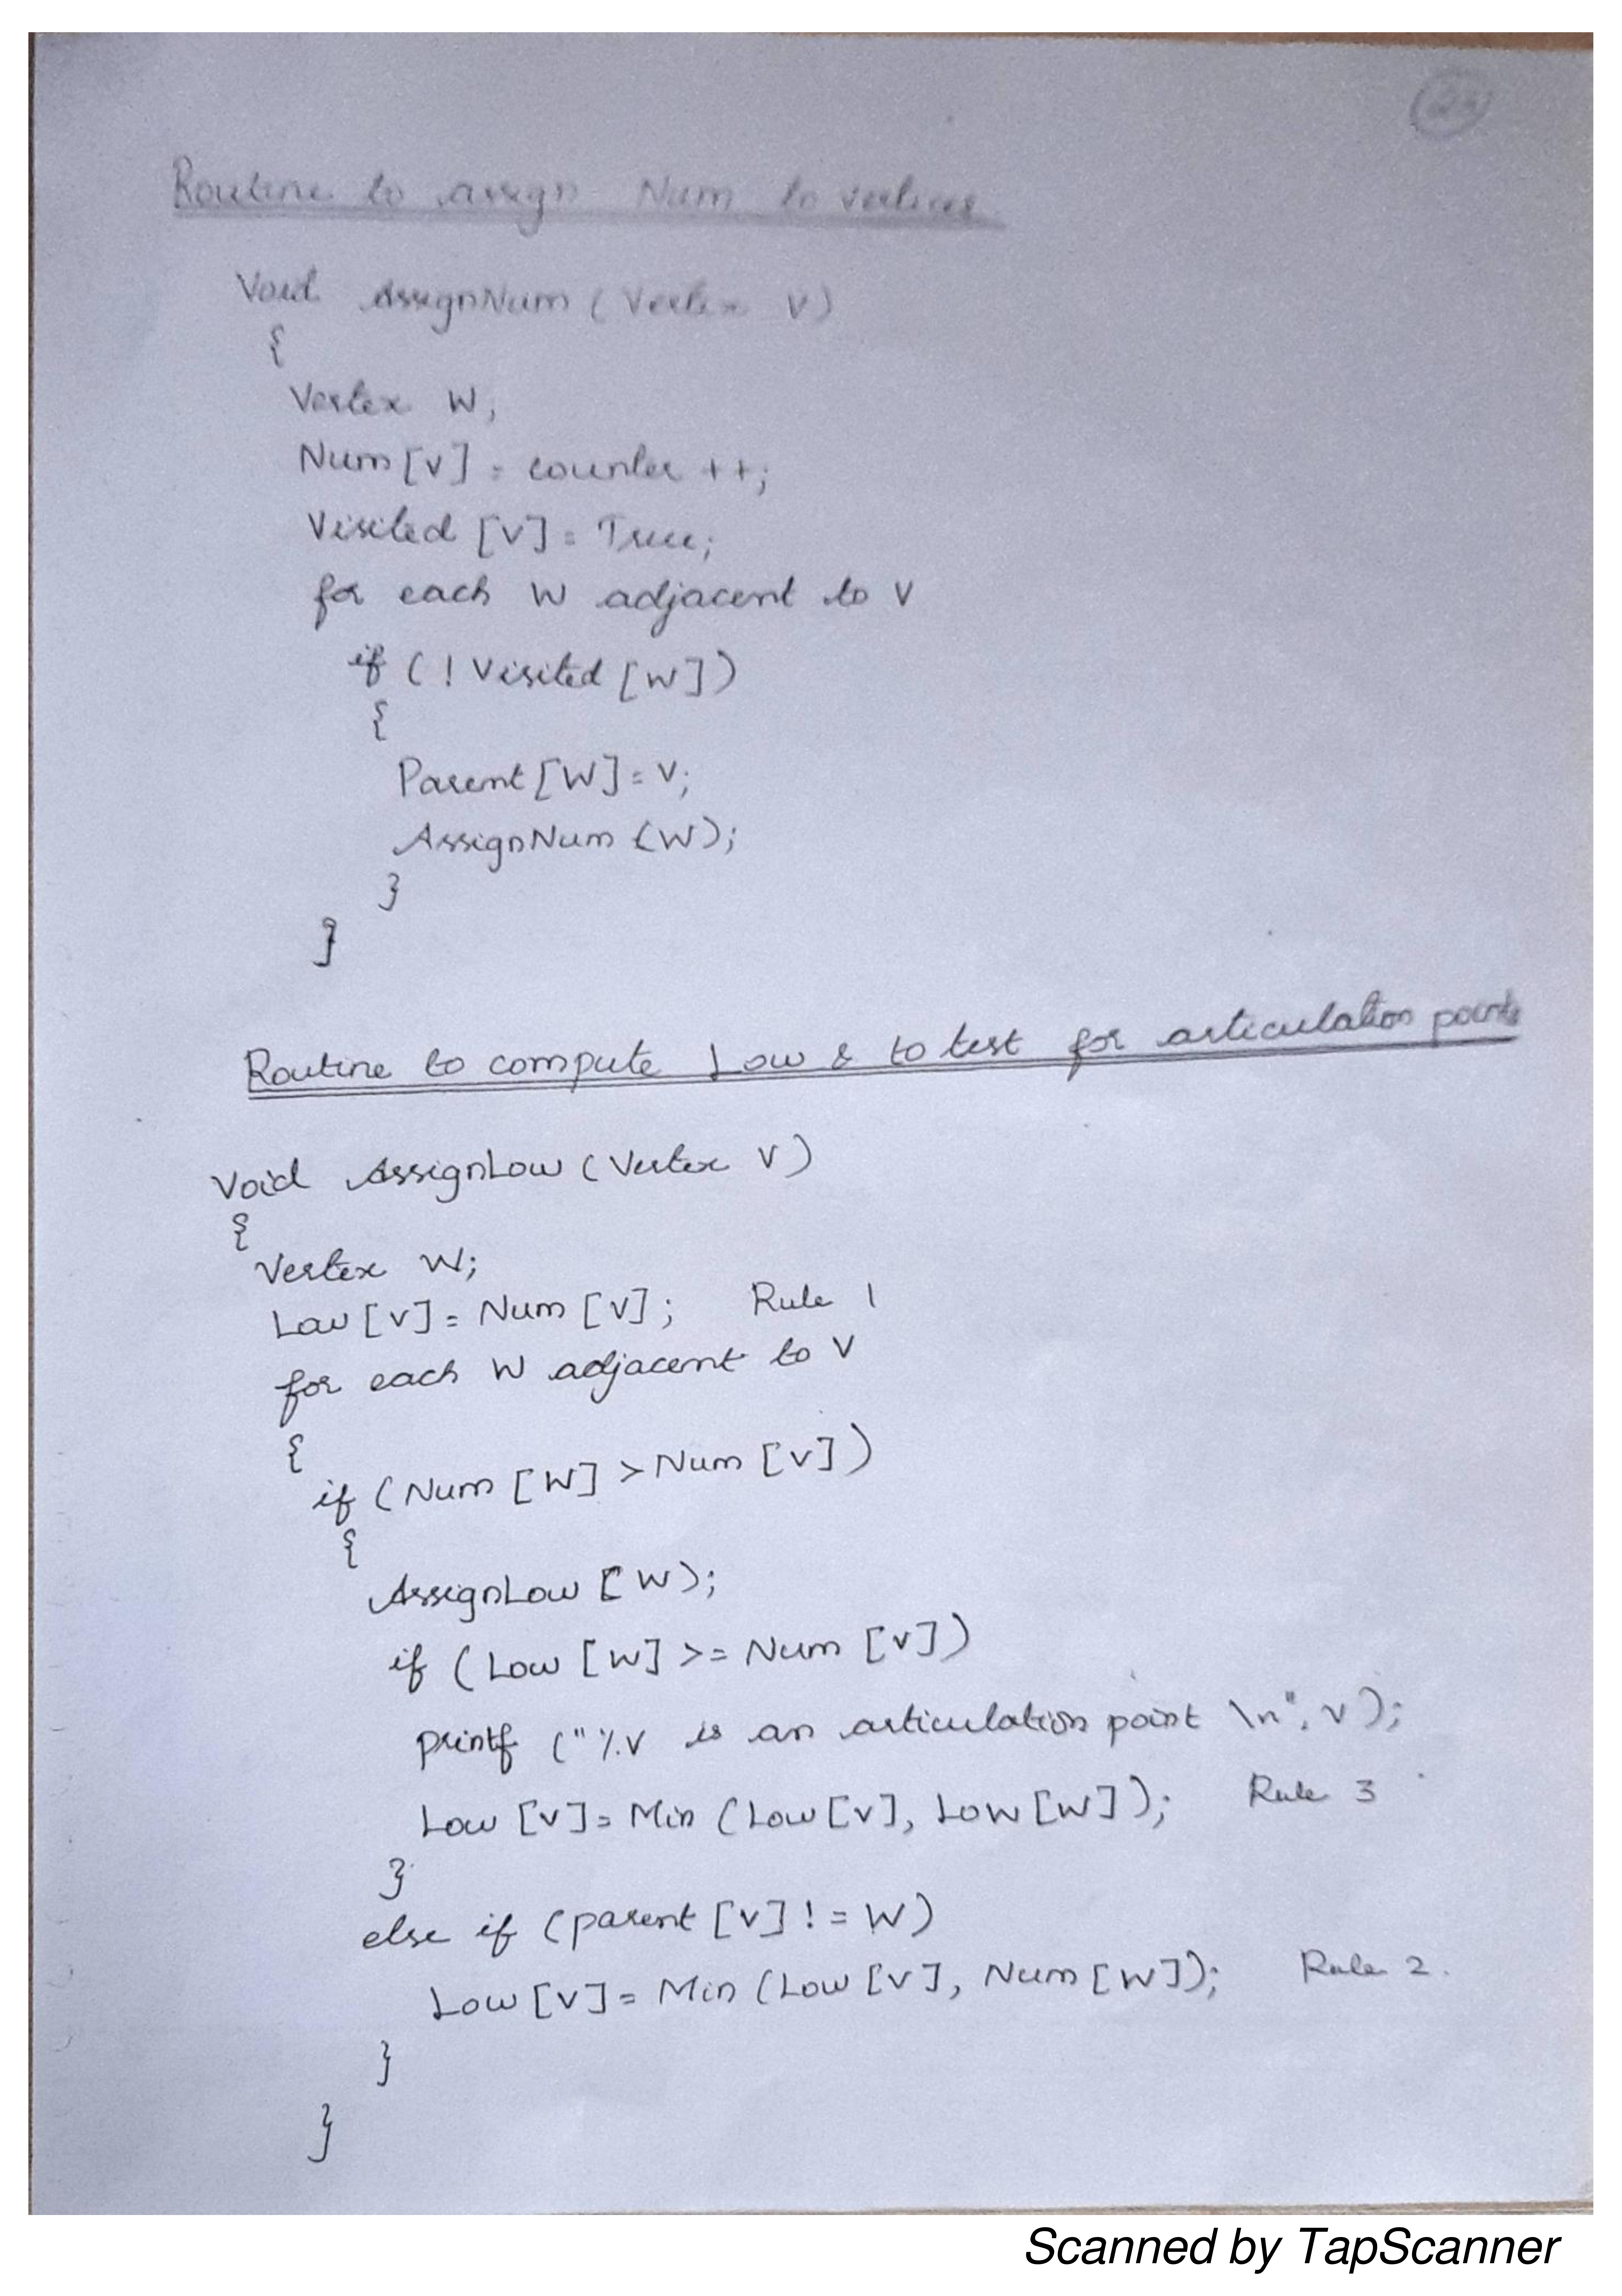 Routine to assign Num to vertices
Void AssignNum (Vertex V)
{
Vertex W;
Num[V] = counter ++;
Visited [V] = True;
for each W adjacent to V
if ( ! Visited [W])
{
Parent [W] = V;
AssignNum (W);
}
}
Routine to compute Low & to test for articulation points
Void AssignLow (Vertex V)
{
Vertex W;
Low [V] = Num [V]; Rule 1
for each W adjacent to V
{
if (Num [W] > Num [V])
{
AssignLow [W);
if (Low [W] >= Num [V])
printf ("%v is an articulation point \n", v);
Low [V] = Min (Low [V], Low [W]); Rule 3
}
else if (parent [V] != W)
Low [V] = Min (Low [V], Num [W]); Rule 2.
}
}
Scanned by TapScanner